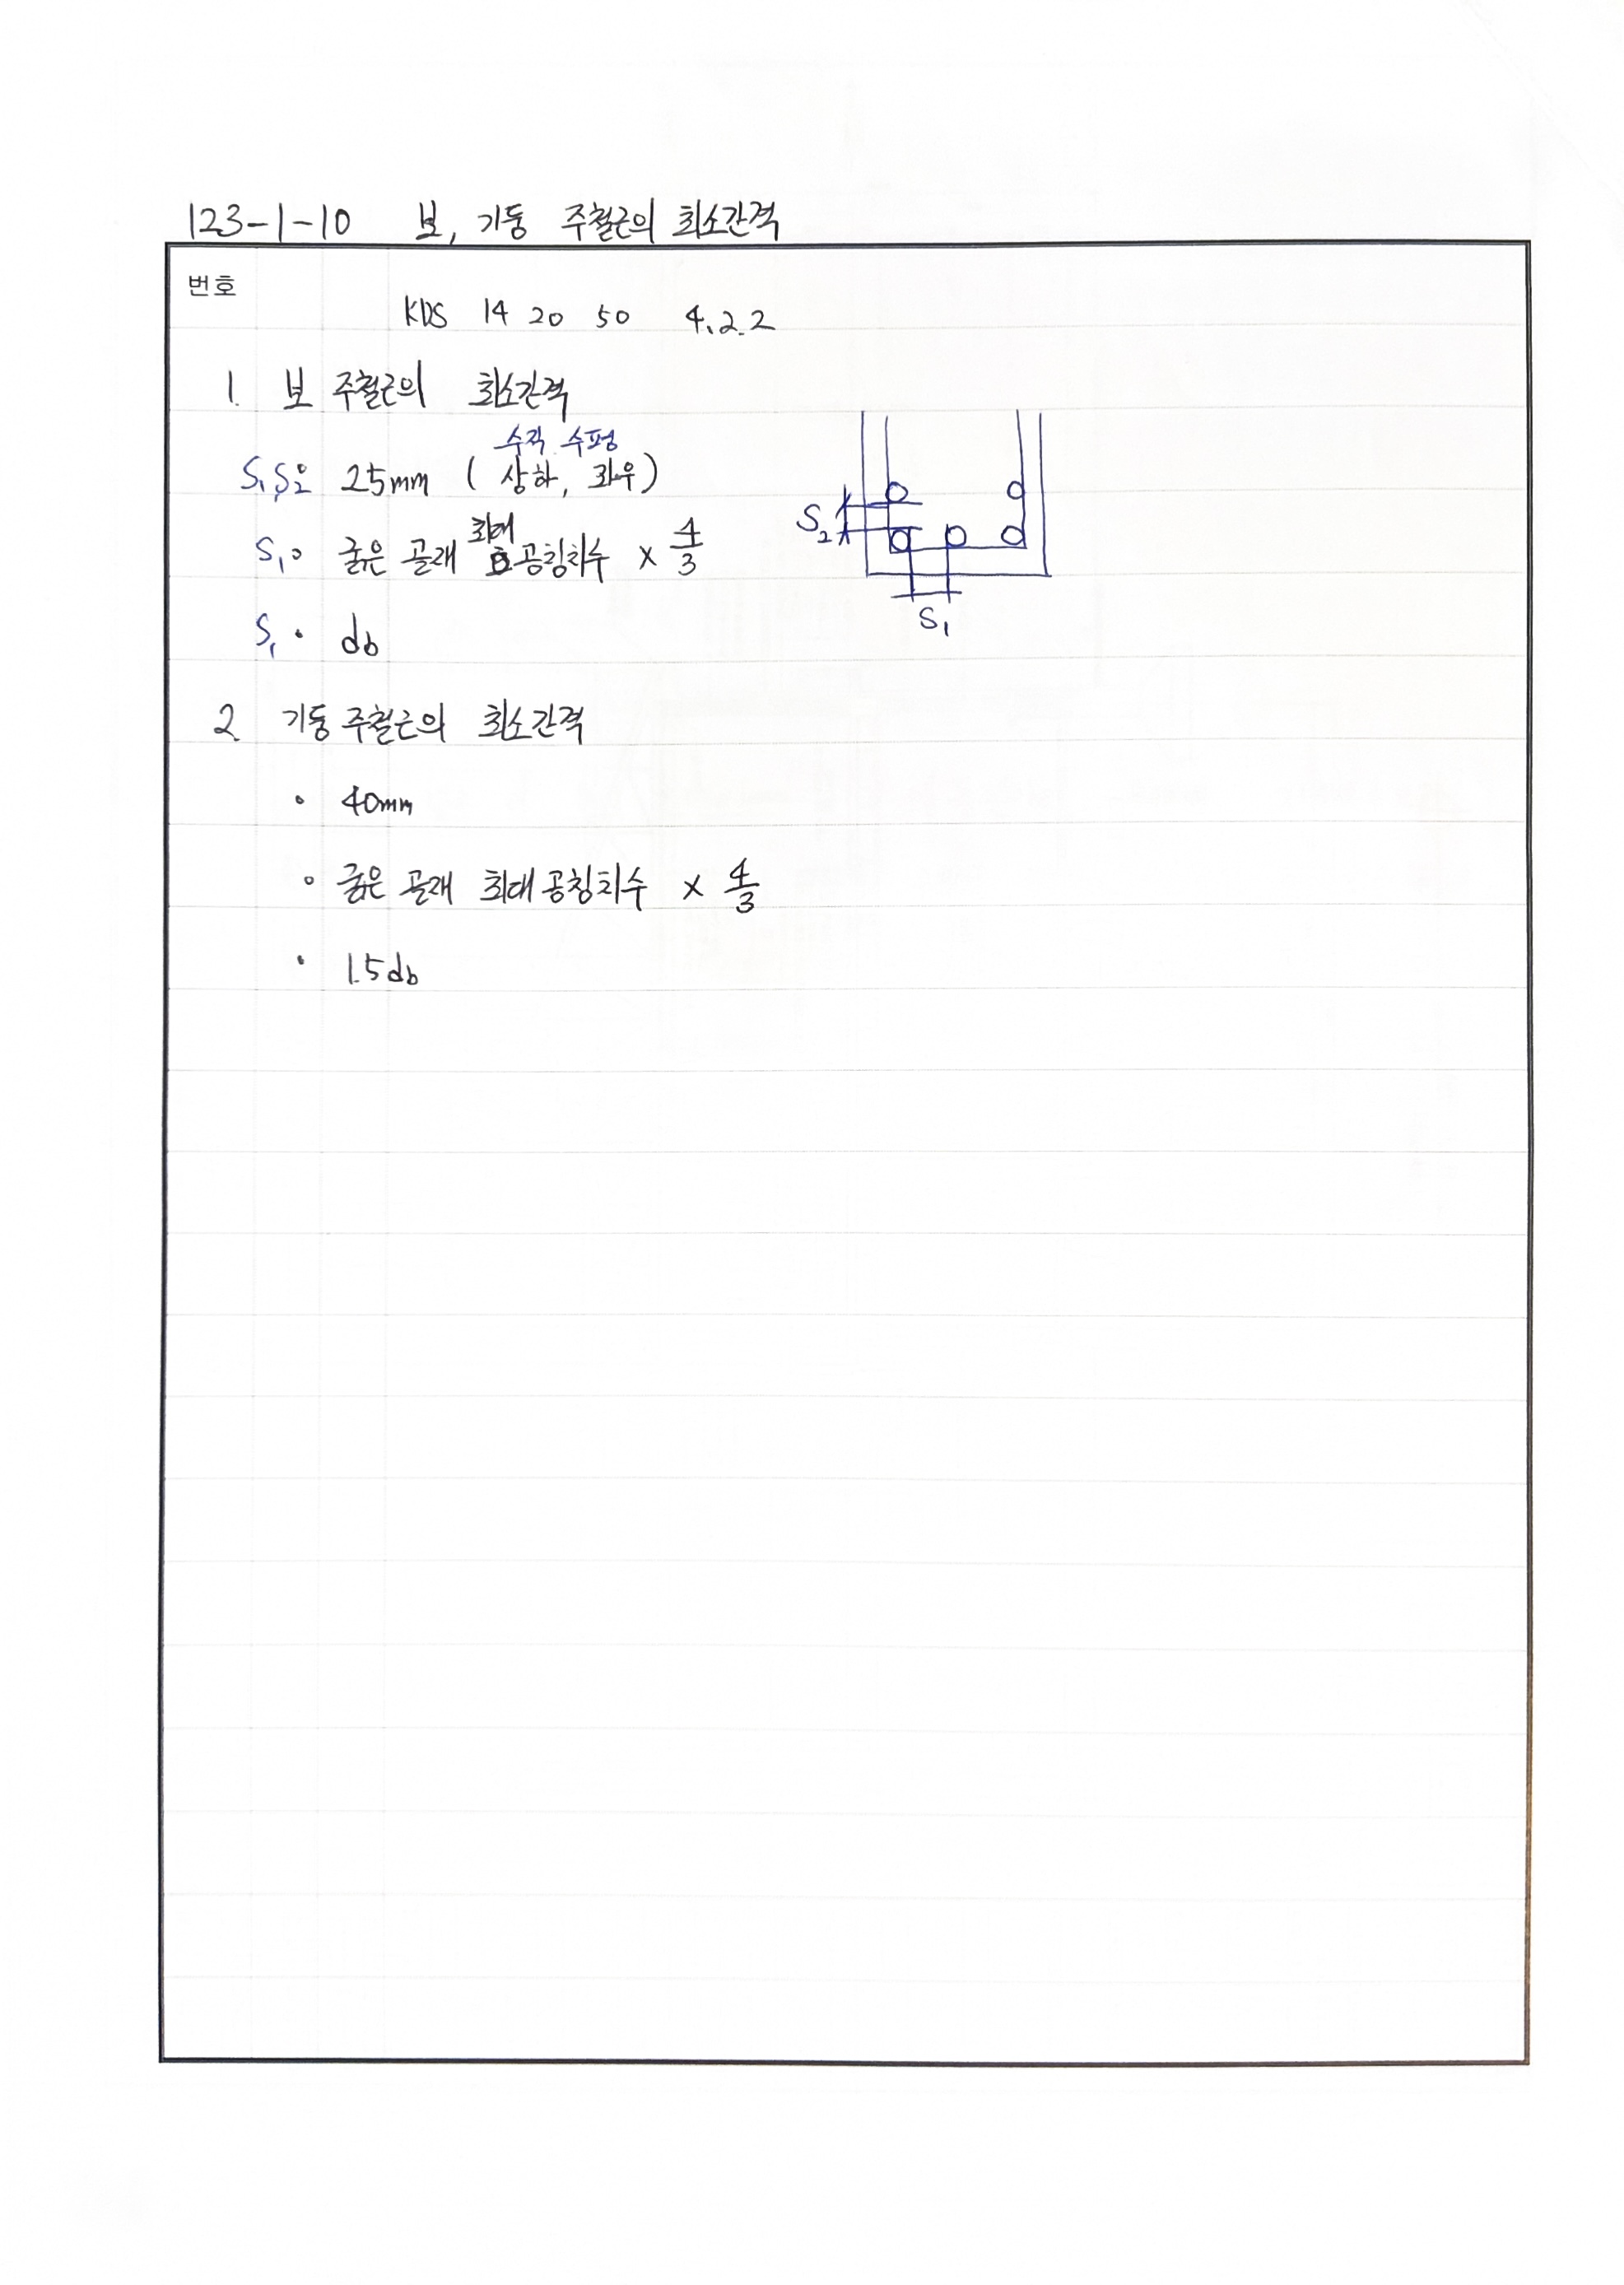 123-1-10 보, 기둥 주철근의 최소간격
번호
KDS 14 20 50 4.2.2
1. 보 주철근의 최소간격
수직 수평
S1, S2 • 25mm (상하, 좌우)
최대
S1 • 굵은 골재 공칭치수 × 4/3
S1 • db
S2
S1
2. 기둥 주철근의 최소간격
• 40mm
• 굵은 골재 최대 공칭치수 × 4/3
• 1.5db